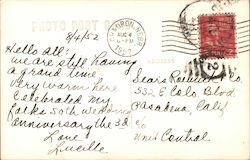 PHOTO POST
AUG 4
1952
8/4/52
Hello all:
we are still having
a grand time
Very warm here
Celebrated my
folks 50th wedding
anniversary the 3d
Love
Lucille
ADDRESS
Sears Roebuck Co
532 E Colo Blvd
Pasadena, Calif
c/o
Unit Control